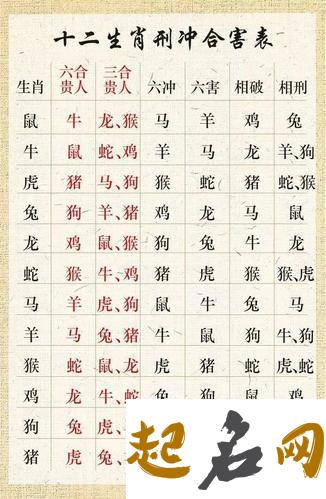 十二生肖刑冲合害表
六合 三合
生肖 贵人 贵人 六冲 六害 相破 相刑
鼠 牛 龙、猴 马 羊 鸡 兔
牛 鼠 蛇、鸡 羊 马 龙 羊、狗
虎 猪 马、狗 猴 蛇 猪 蛇、猴
兔 狗 羊、猪 鸡 龙 马 鼠
龙 鸡 鼠、猴 狗 兔 牛 龙
蛇 猴 牛、鸡 猪 虎 猴 猴、虎
马 羊 虎、狗 鼠 牛 兔 马
羊 马 兔、猪 牛 鼠 狗 牛、狗
猴 蛇 鼠、龙 虎 猪 蛇 虎、蛇
鸡 龙 牛、蛇 兔 狗 鼠 鸡
狗 兔 虎、
猪 虎 兔、
起名网